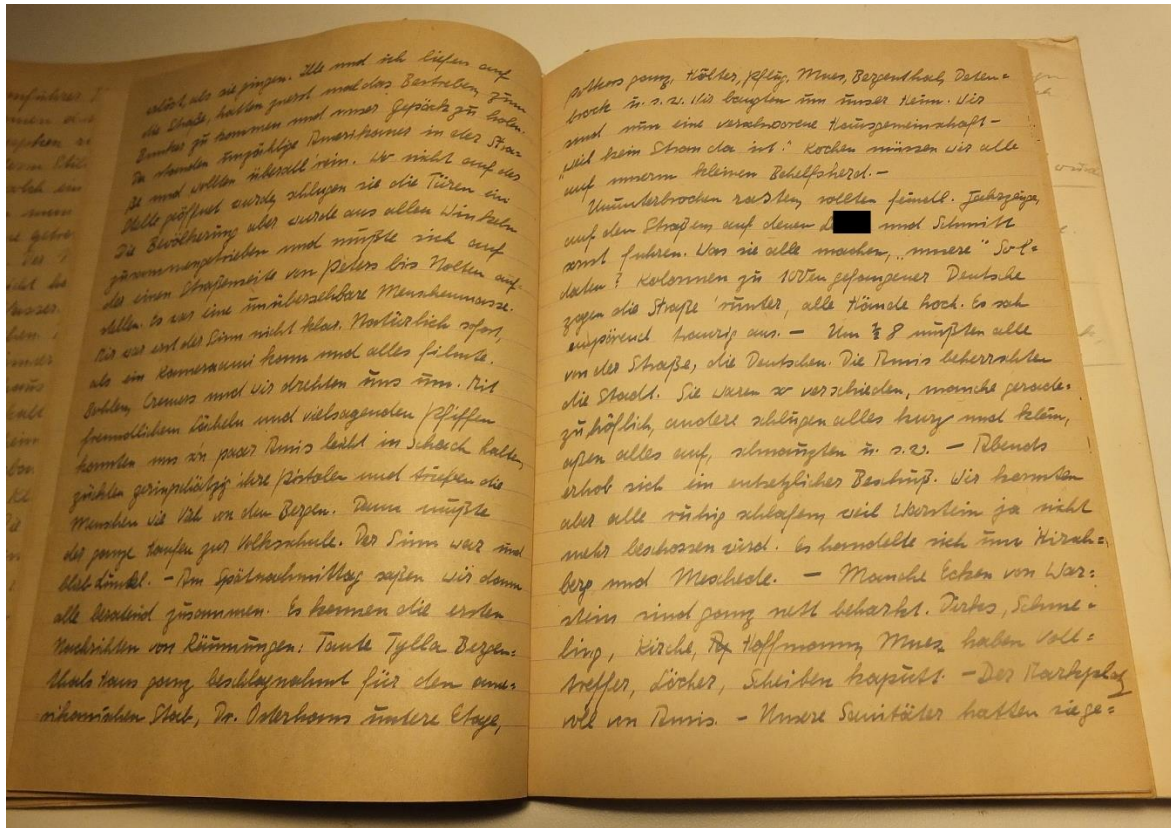 erlöst, als sie gingen. Ille und ich liefen auf
die Straße, hatten zuerst mal das Bestreben, zum
Bunker zu kommen und unser Gepäck zu holen.
Da standen unzählige Amerikaner in der Stra-
ße und wollten überall 'rein. Wo nicht auf der
Stelle geöffnet wurde, schlugen sie die Türen ein
Die Bevölkerung aber wurde aus allen Winkeln
zusammengetrieben und mußte sich auf
der einen Straßenseite von Peters bis Nolten auf-
stellen. Es war eine unübersehbare Menschenmasse.
Mir war erst der Sinn nicht klar. Natürlich sofort,
als ein Kameraami kam und alles filmte.
Cremers und wir drehten uns um. Mit
freundlichem Lächeln und vielsagenden Pfiffen
konnten uns 'n paar Amis leicht in Schach halten,
zückten geringschätzig ihre Pistolen und trieben die
Menschen wie Vieh von den Bergen. Dann mußte
der ganze Haufen zur Volksschule. Der Sinn war und
blieb dunkel. - Am Spätnachmittag saßen wir dann
alle beratend zusammen. Es kamen die ersten
Nachrichten von Räumungen: Tante Tylla Bergen=
thals Haus ganz beschlagnahmt für den ame=
rikanischen Stab, Dr. Osterhaus untere Etage,
ganz, Költer, Pflug, Mues, Bergenthal, Daten=
brock u. s. w. Wir bangten um unser Heim. Wir
sind nun eine verschworene Hausgemeinschaft -
"weil kein Stran da ist." Kochen müssen wir alle
auf unserm kleinen Behelfsherd. -
Ununterbrochen rasten, rollten feindl. Fahrzeuge,
auf den Straßen, auf denen und Schmitt
sonst fuhren. Was sie alle machen, "unsere" Sol=
daten? Kolonnen zu 100ten gefangener Deutsche
zogen die Straße 'runter, alle Hände hoch. Es sah
empörend traurig aus. - Um ½ 8 mußten alle
von der Straße, die Deutschen. Die Amis beherrschten
die Stadt. Sie waren so verschieden, manche gerade=
zu höflich, andere schlugen alles kurz und klein,
aßen alles auf, u. s. w. - Abends
erhob sich ein entsetzlicher Beschuß. Wir konnten
aber alle ruhig schlafen, weil Warstein ja nicht
mehr beschossen wird. Es handelte sich um Hirsch=
berg und Meschede. - Manche Ecken von War=
stein sind ganz nett beharkt. Dirks, Schme=
ling, Kirche, Hoffmann, Mues haben Voll=
treffer, Löcher, Scheiben kaputt. - Der Marktplatz
voll von Amis. - Unsere Sanitäter hatten sie ge=